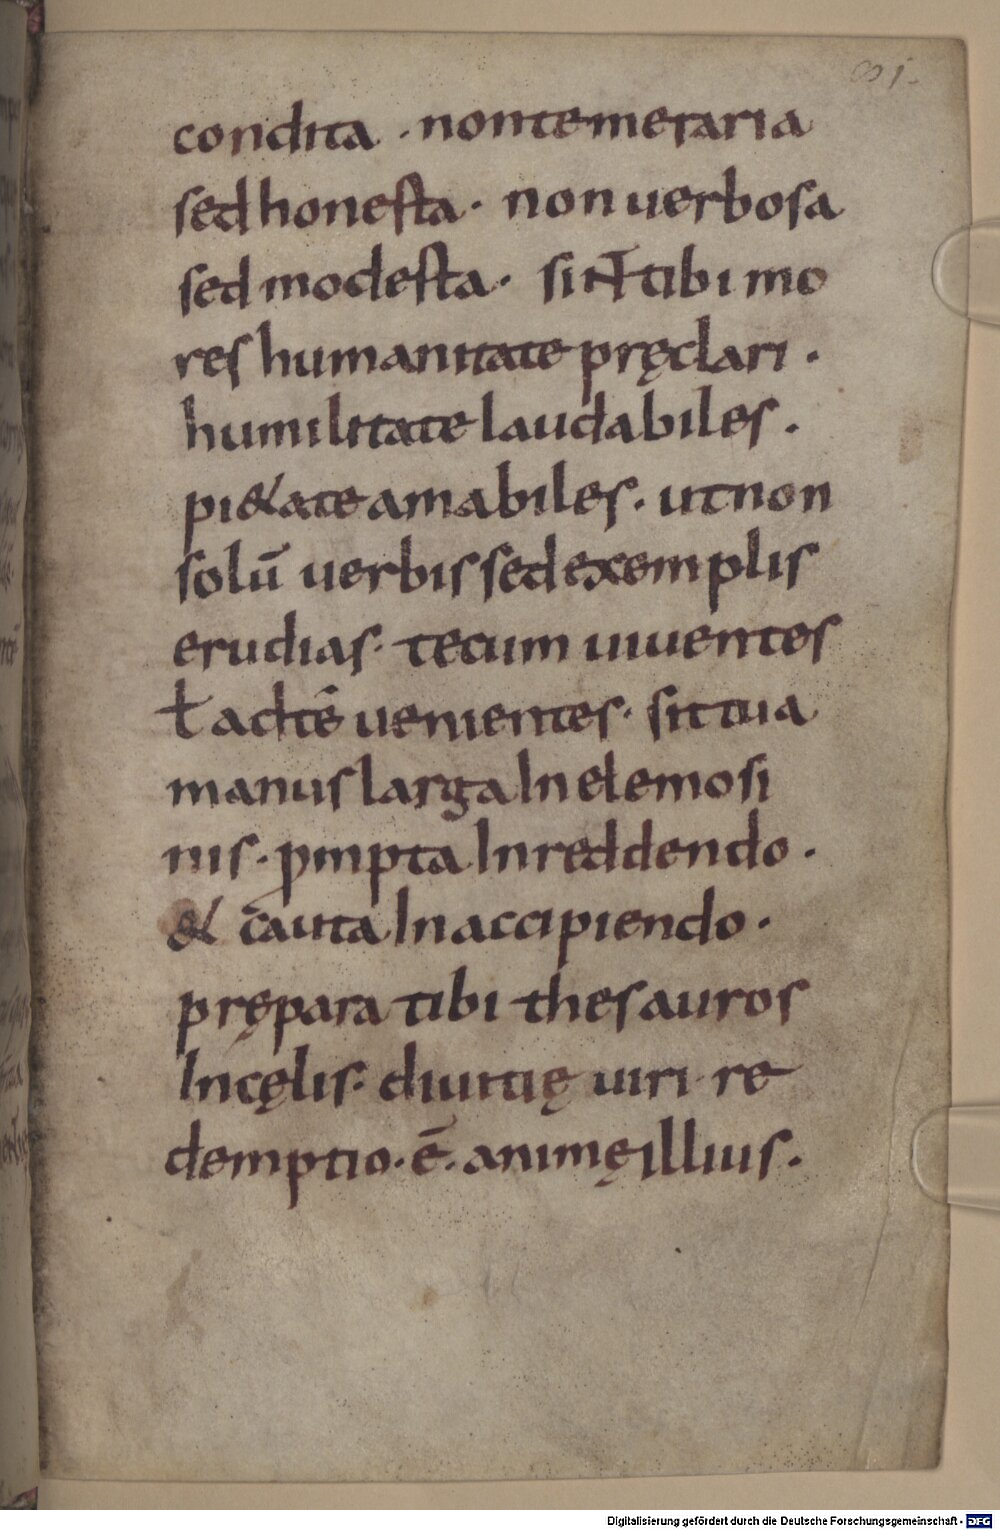 condita · non temeraria
sed honesta · non verbosa
sed modesta · sint tibi mo
res humanitate pręclari ·
humilitate laudabiles ·
pi&ate amabiles · ut non
solū verbis sed exemplis
erudias · tecum uiuentes
ł ad tē uenientes · sit tua
manus larga In elemosi
nis · ꝓmpta In reddendo ·
& cauta In accipiendo ·
prępara tibi thesauros
In cęlis · diuitię uiri re
demptio · ē · animę illius ·
Digitalisierung gefördert durch die Deutsche Forschungsgemeinschaft - DFG